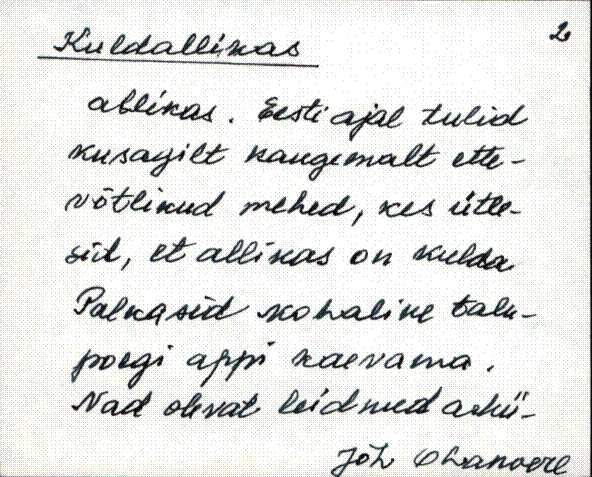 2
Kuldallikas
allikas. Eesti ajal tulid
kusagilt kaugemalt ette-
võtlikud mehed, kes ütle-
sid, et allikas on kulda
Palkasid kohalike talu-
poegi appi kaevama.
Nad olevat leidnud
Jõh